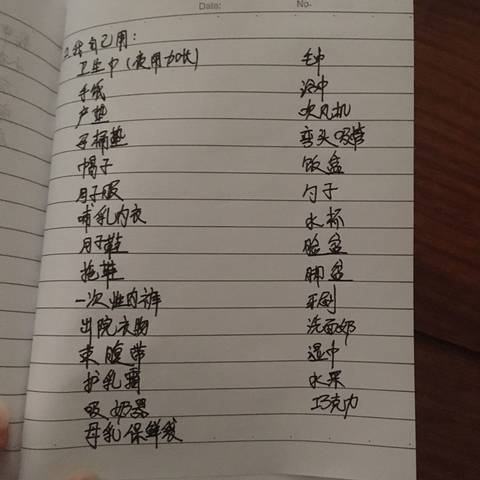 Date:
No.
2.我自己用:
卫生巾(夜用加长)
手纸
产垫
马桶垫
帽子
月子服
哺乳内衣
月子鞋
拖鞋
一次性内裤
出院衣物
束腹带
护乳霜
吸奶器
母乳保鲜袋
毛巾
浴巾
吹风机
弯头吸管
饭盒
勺子
水杯
脸盆
脚盆
牙刷
洗面奶
湿巾
水果
巧克力